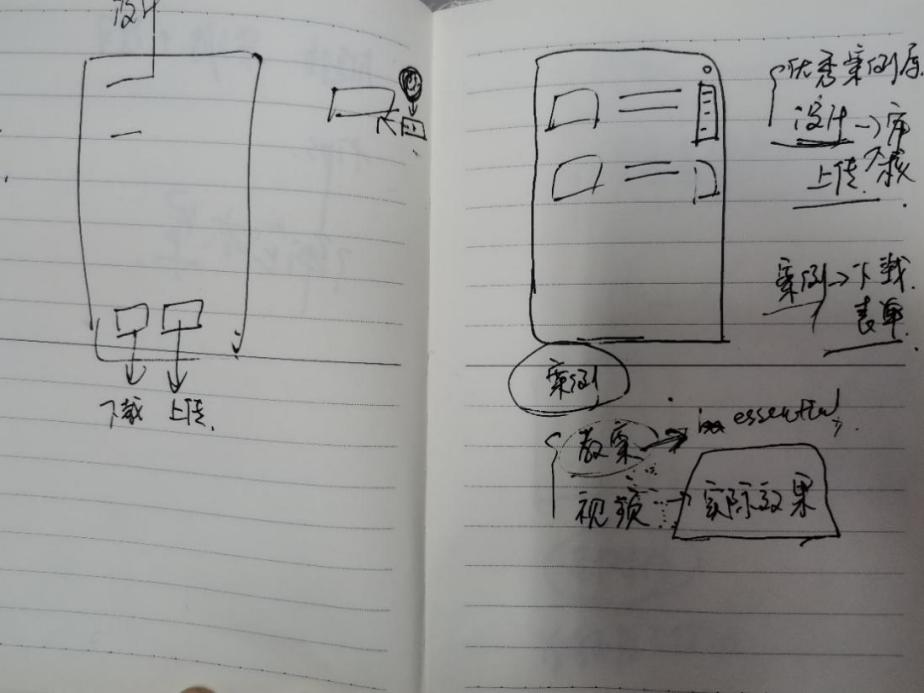 设计
下载 上传
优秀案例库
设计→
上传 下载
案例→下载
表单
案例
教案→ essential
视频→实际效果